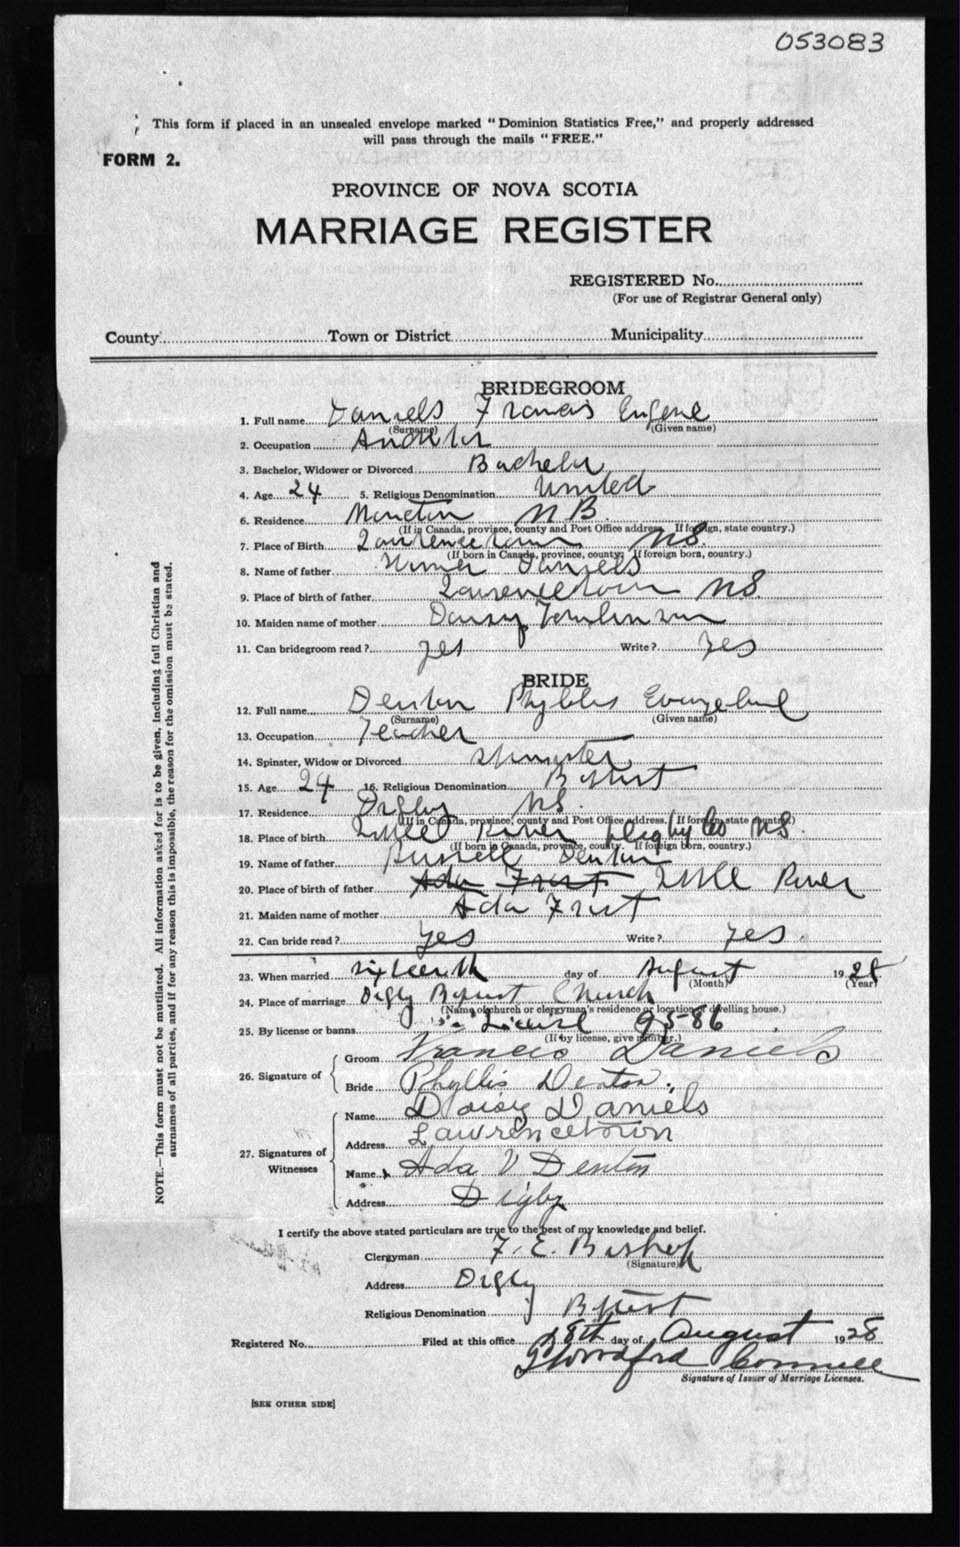 053083
This form if placed in an unsealed envelope marked "Dominion Statistics Free," and properly addressed
will pass through the mails "FREE."
FORM 2.
PROVINCE OF NOVA SCOTIA
MARRIAGE REGISTER
REGISTERED No.
(For use of Registrar General only)
County Town or District Municipality
BRIDEGROOM
1. Full name Daniels Francis Eugene
(Surname) (Given name)
2. Occupation
3. Bachelor, Widower or Divorced Bachelor
4. Age 24 5. Religious Denomination United
6. Residence Moncton N B.
(If in Canada, province, county and Post Office address. If foreign, state country.)
7. Place of Birth Lawrencetown N.S.
(If born in Canada, province, county. If foreign born, country.)
8. Name of father Daniels
9. Place of birth of father Lawrencetown N.S.
10. Maiden name of mother Daisy Tomlinson
11. Can bridegroom read? yes Write? Yes
BRIDE
12. Full name Denton Phyllis Evangeline
(Surname) (Given name)
13. Occupation Teacher
14. Spinster, Widow or Divorced Spinster
15. Age 24 16. Religious Denomination Baptist
17. Residence Digby N.S.
(If in Canada, province, county and Post Office address. If foreign, state country.)
18. Place of birth Little River Digby Co N.S.
(If born in Canada, province, county. If foreign born, country.)
19. Name of father Russell Denton
20. Place of birth of father Ada Frost Little River
21. Maiden name of mother Ada Frost
22. Can bride read? Yes Write? Yes.
23. When married sixteenth day of August 1928
(Month) (Year)
24. Place of marriage Digby Baptist Church
(Name of church or clergyman's residence or location of dwelling house.)
25. By license or banns License 9586
(If by license, give number.)
26. Signature of Groom Francis Daniels
Bride Phyllis Denton.
27. Signatures of Witnesses Name Daisy Daniels
Address Lawrencetown
Name Ada V Denton
Address Digby
I certify the above stated particulars are true to the best of my knowledge and belief.
Clergyman F. E. Bishop
(Signature)
Address Digby
Religious Denomination Baptist
Registered No. Filed at this office 28th day of August 1928
Signature of Issuer of Marriage Licenses.
[SEE OTHER SIDE]
NOTE.—This form must not be mutilated. All information asked for is to be given, including full Christian and
surnames of all parties, and if for any reason this is impossible, the reason for the omission must be stated.